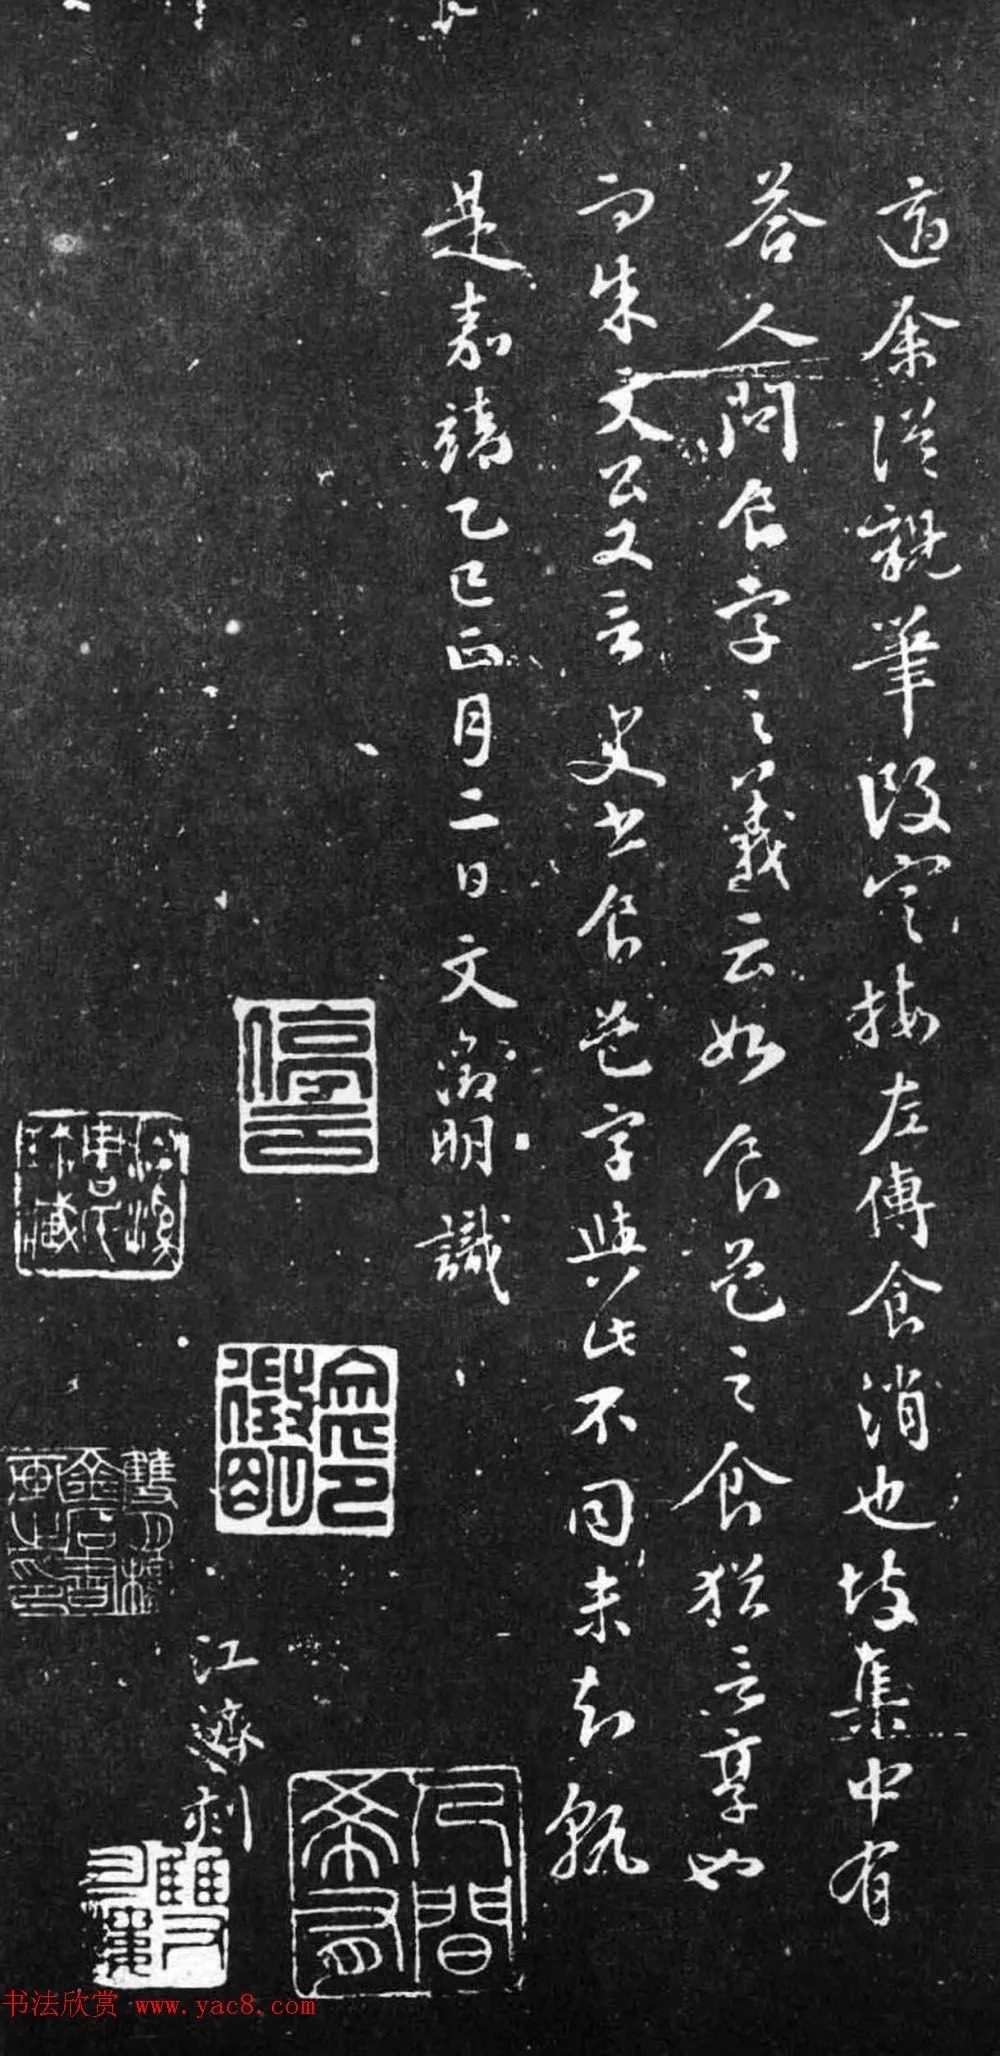 適余從親筆改定按左傳食消也坡集中有
答人問食字之義云如食邑之食猶言享也
而朱文公又言史書食邑字與此不同未知孰
是嘉靖乙巳正月二日文徵明識
停雲
江濟刻
人間希有
书法欣赏 www.yac8.com